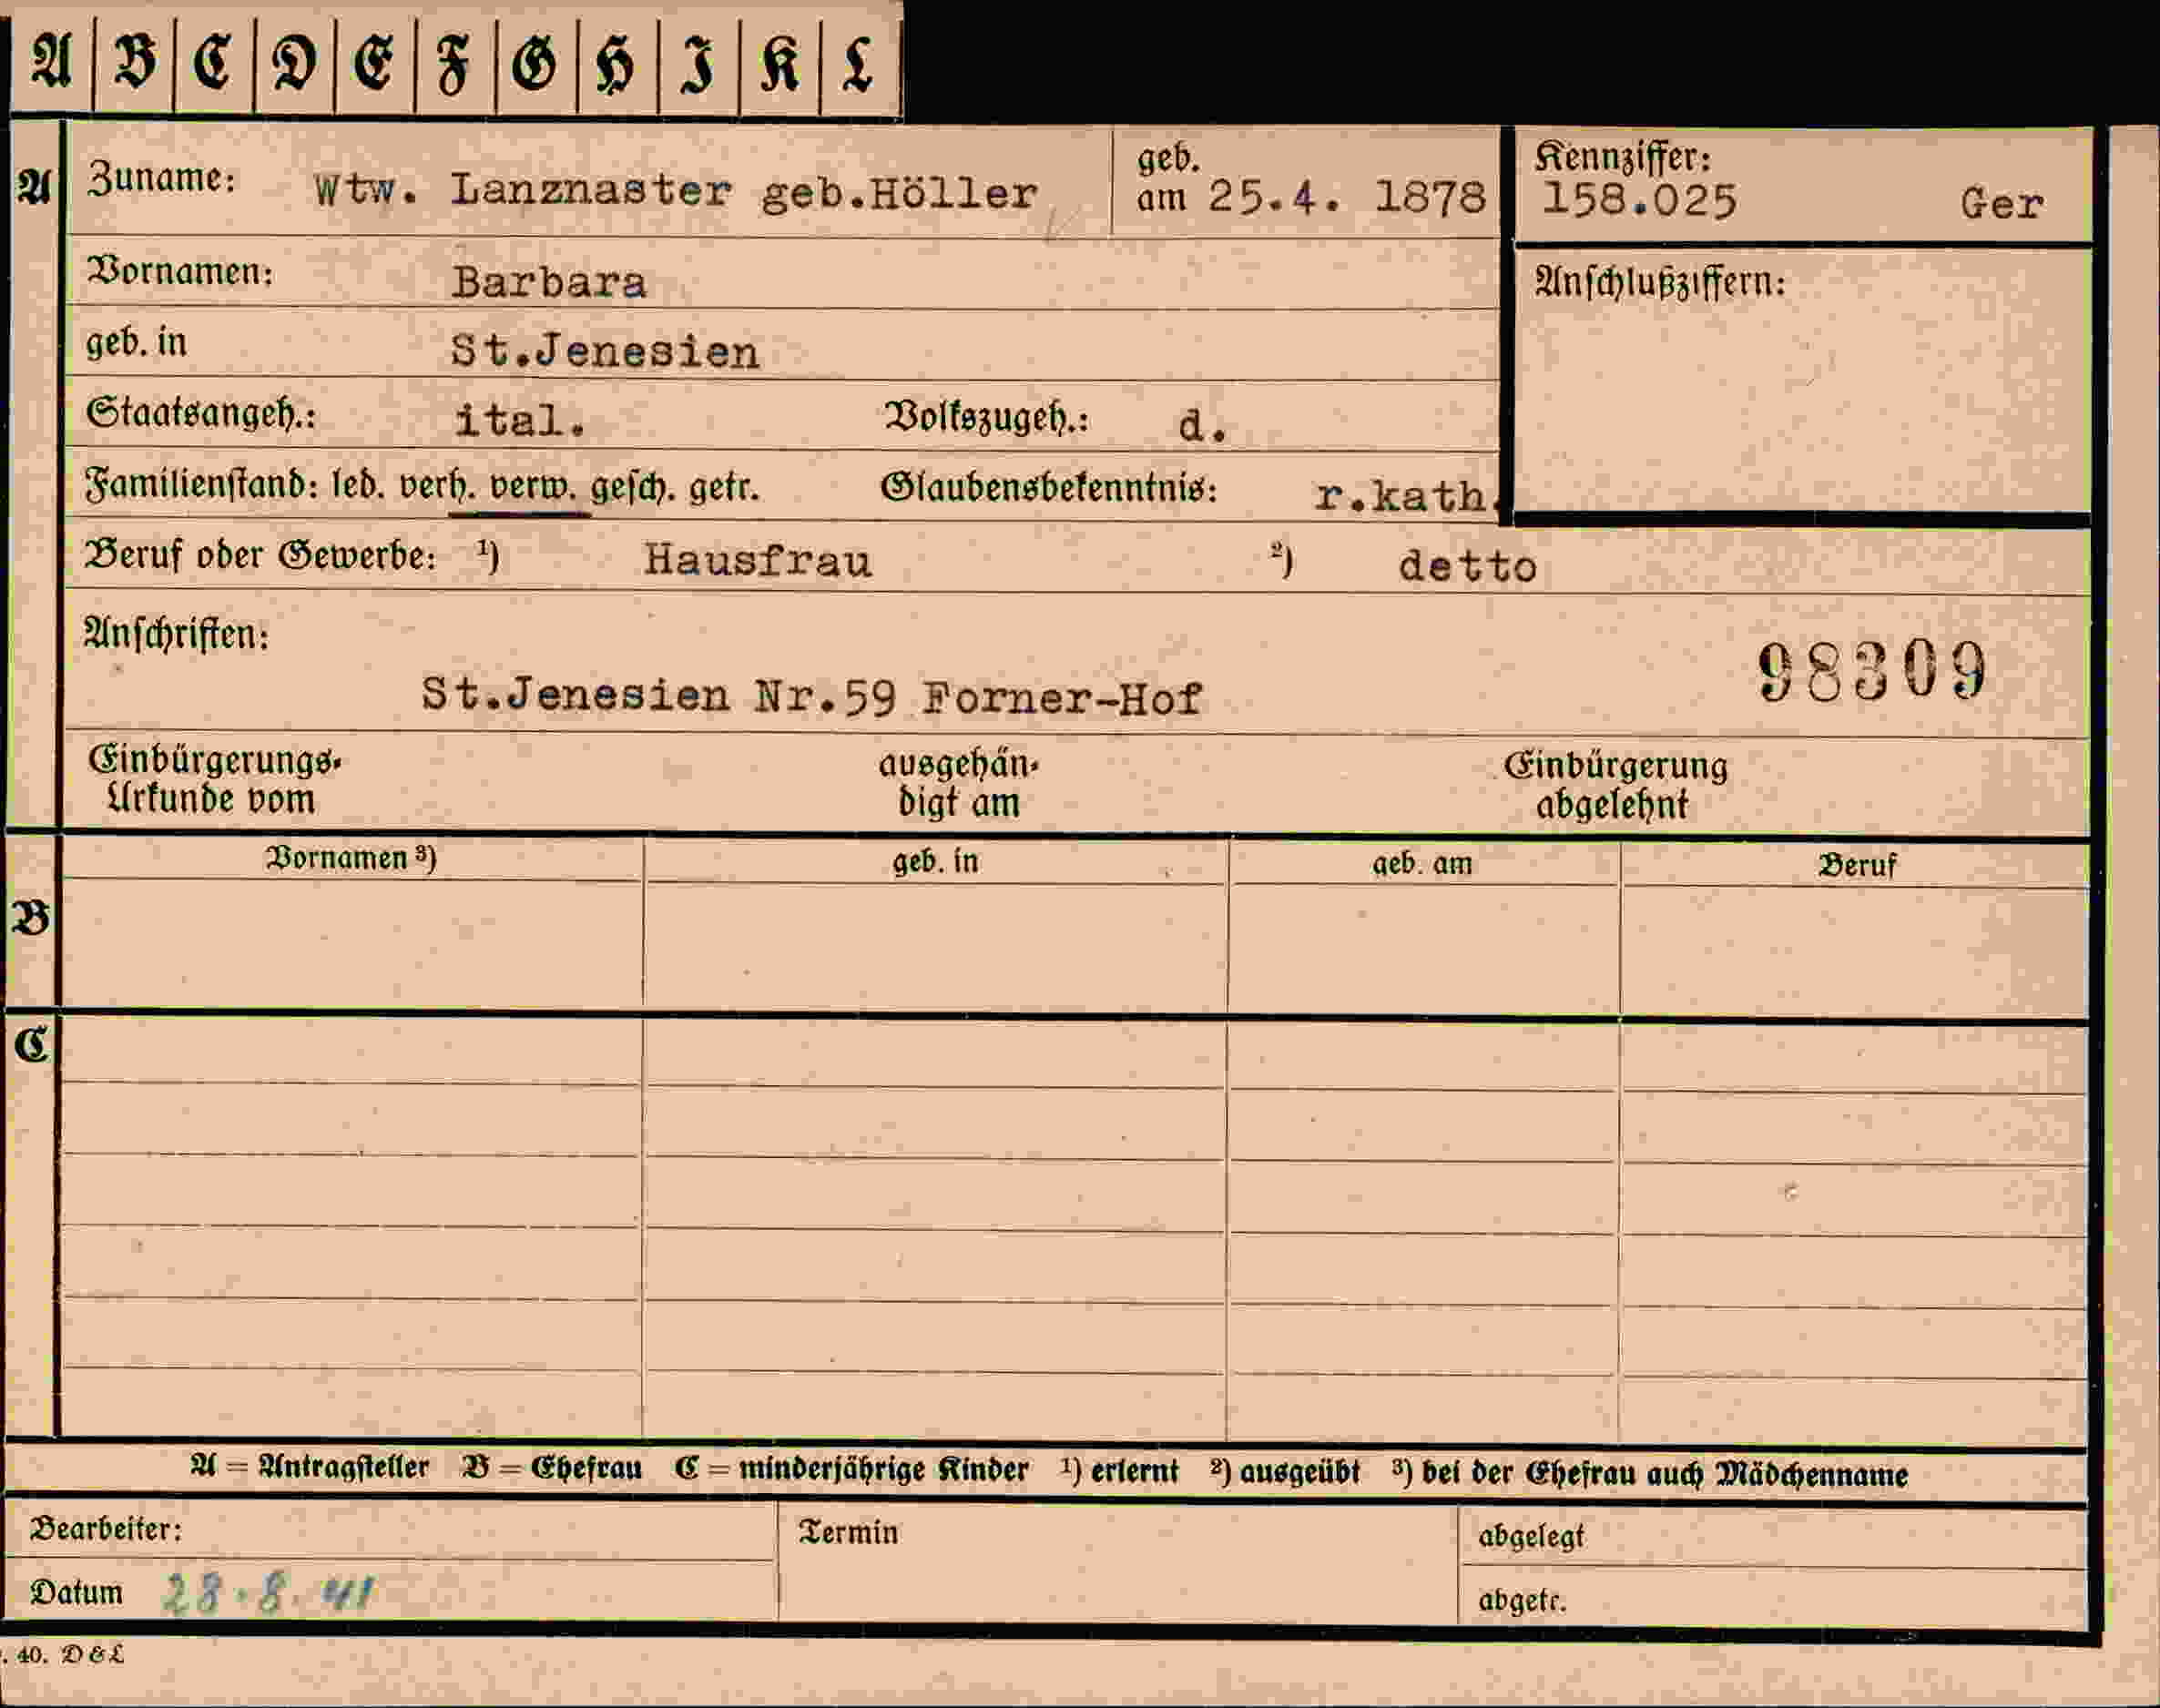 A B C D E F G H I K L
A Zuname: Wtw. Lanznaster geb.Höller geb. am 25.4. 1878 Kennziffer: 158.025 Ger
Vornamen: Barbara Anschlußziffern:
geb. in St.Jenesien
Staatsangeh.: ital. Volkszugeh.: d.
Familienstand: led. verh. verw. gesch. getr. Glaubensbekenntnis: r.kath.
Beruf oder Gewerbe: ¹) Hausfrau ²) detto
Anschriften: 98309
St.Jenesien Nr.59 Forner-Hof
Einbürgerungs- ausgehän- Einbürgerung
Urkunde vom digt am abgelehnt
Vornamen ³) geb. in geb. am Beruf
B
C
A = Antragsteller B = Ehefrau C = minderjährige Kinder ¹) erlernt ²) ausgeübt ³) bei der Ehefrau auch Mädchenname
Bearbeiter: Termin abgelegt
Datum 28.8.41 abgetr.
. 40. D & L